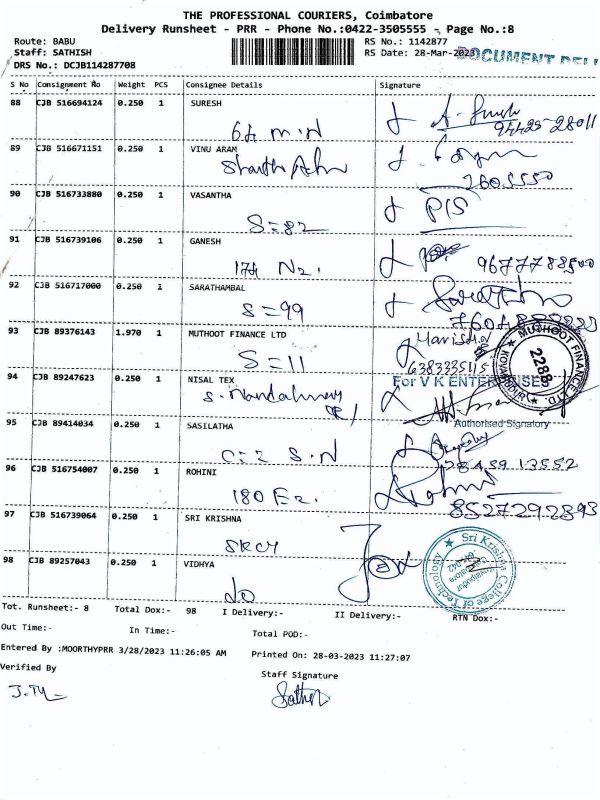 THE PROFESSIONAL COURIERS, Coimbatore
Delivery Runsheet - PRR - Phone No.:0422-3505555 - Page No.:8
Route: BABU
Staff: SATHISH
DRS No.: DCJB114287708
RS No.: 1142877
RS Date: 28-Mar-2023
DOCUMENT
S No Consignment No Weight PCS Consignee Details Signature
88 CJB 516694124 0.250 1 SURESH
94425-28011
89 CJB 516671151 0.250 1 VINU ARAM
2605550
90 CJB 516733880 0.250 1 VASANTHA
S=82
91 CJB 516739106 0.250 1 GANESH
92 CJB 516717000 0.250 1 SARATHAMBAL
S=99
93 CJB 89376143 1.970 1 MUTHOOT FINANCE LTD
S=11
6383335115
MUTHOOT FINANCE LTD.
2288
94 CJB 89247623 0.250 1 NISAL TEX
For V K ENTERPRISES
Authorised Signatory
95 CJB 89414034 0.250 1 SASILATHA
96 CJB 516754007 0.250 1 ROHINI
8527292893
97 CJB 516739064 0.250 1 SRI KRISHNA
SKCT
Sri Krishna College of Technology
Kovaipudur
Coimbatore
641 042
98 CJB 89257043 0.250 1 VIDHYA
Tot. Runsheet:- 8 Total Dox:- 98 I Delivery:- II Delivery:- RTN Dox:-
Out Time:- In Time:- Total POD:-
Entered By :MOORTHYPRR 3/28/2023 11:26:05 AM Printed On: 28-03-2023 11:27:07
Verified By Staff Signature